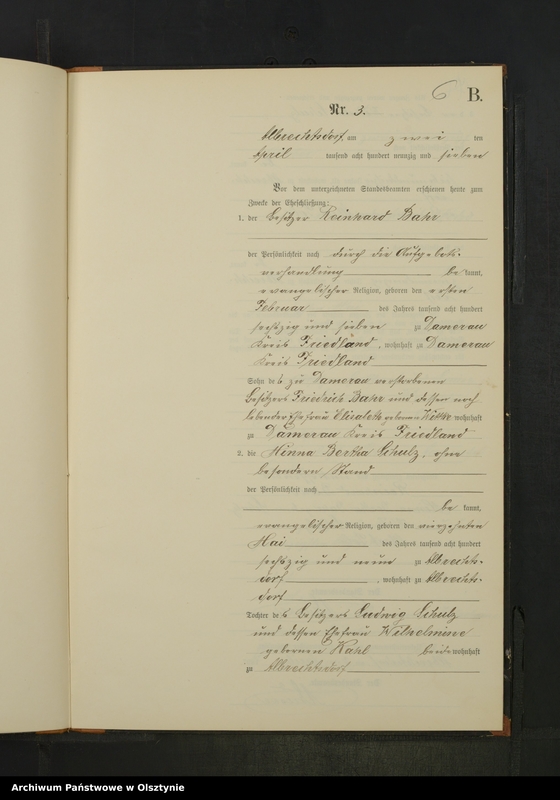 6 B.
Nr. 3.
Albrechtsdorf am zwei ten
April tausend acht hundert neunzig und sieben
Vor dem unterzeichneten Standesbeamten erschienen heute zum
Zwecke der Eheschließung:
1. der Besitzer Reinhard Bahr
der Persönlichkeit nach durch die Aufgebots-
verhandlung be kannt,
evangelischer Religion, geboren den ersten
Februar des Jahres tausend acht hundert
sechszig und sieben zu Damerau
Kreis Friedland, wohnhaft zu Damerau
Kreis Friedland
Sohn des zu Damerau verstorbenen
Besitzers Friedrich Bahr und dessen noch
lebender Ehefrau Elisabeth geborenen wohnhaft
zu Damerau Kreis Friedland
2. die Minna Bertha Schulz, ohne
besondern Stand
der Persönlichkeit nach
be kannt,
evangelischer Religion, geboren den vierzehnten
Mai des Jahres tausend acht hundert
sechszig und neun zu Albrechts-
dorf, wohnhaft zu Albrechts-
dorf
Tochter des Besitzers Ludwig Schulz
und dessen Ehefrau Wilhelmine
gebornen Kahl beide wohnhaft
zu Albrechtsdorf
Archiwum Państwowe w Olsztynie